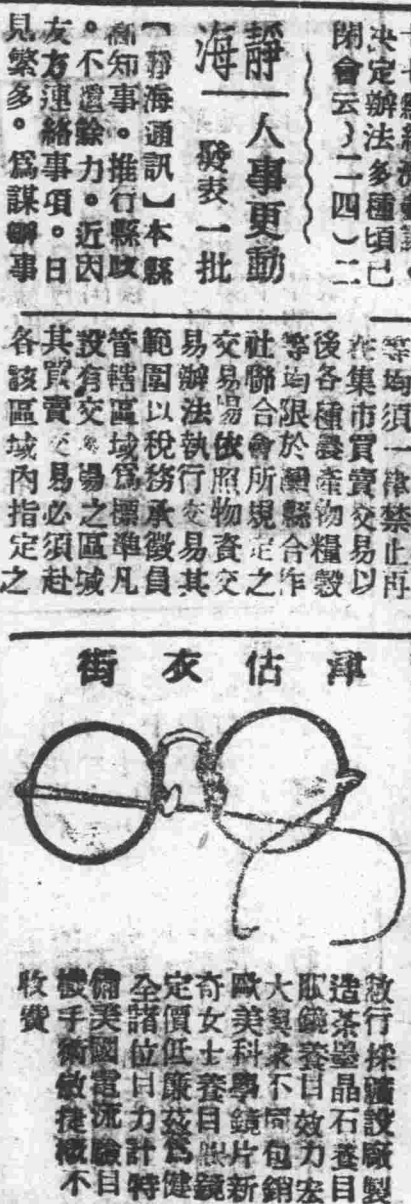 決定辦法多種頃已
閉會云）二四（二
靜海
人事更動
發表一批
【靜海通訊】本縣
高知事。推行縣政
。不遺餘力。近因
友方連絡事項。日
見繁多。爲謀辦事
等均須一律禁止再
在集市買賣交易以
後各種農產物糧穀
等均限於縣合作
社聯合會所規定之
交易場依照物資交
易辦法執行交易其
範圍以稅務承徵員
管轄區域爲標準凡
設有交易場之區域
其買賣交易必須赴
各該區域內指定之
津估衣街
敝行採礦設廠製
造茶墨晶石養目
眼鏡養目效力宏
大與衆不同包銷
歐美科學鏡片新
奇女士養目眼鏡
定價低廉茲爲健
全諸位目力計特
備美國電流驗目
機手術敏捷概不
收費